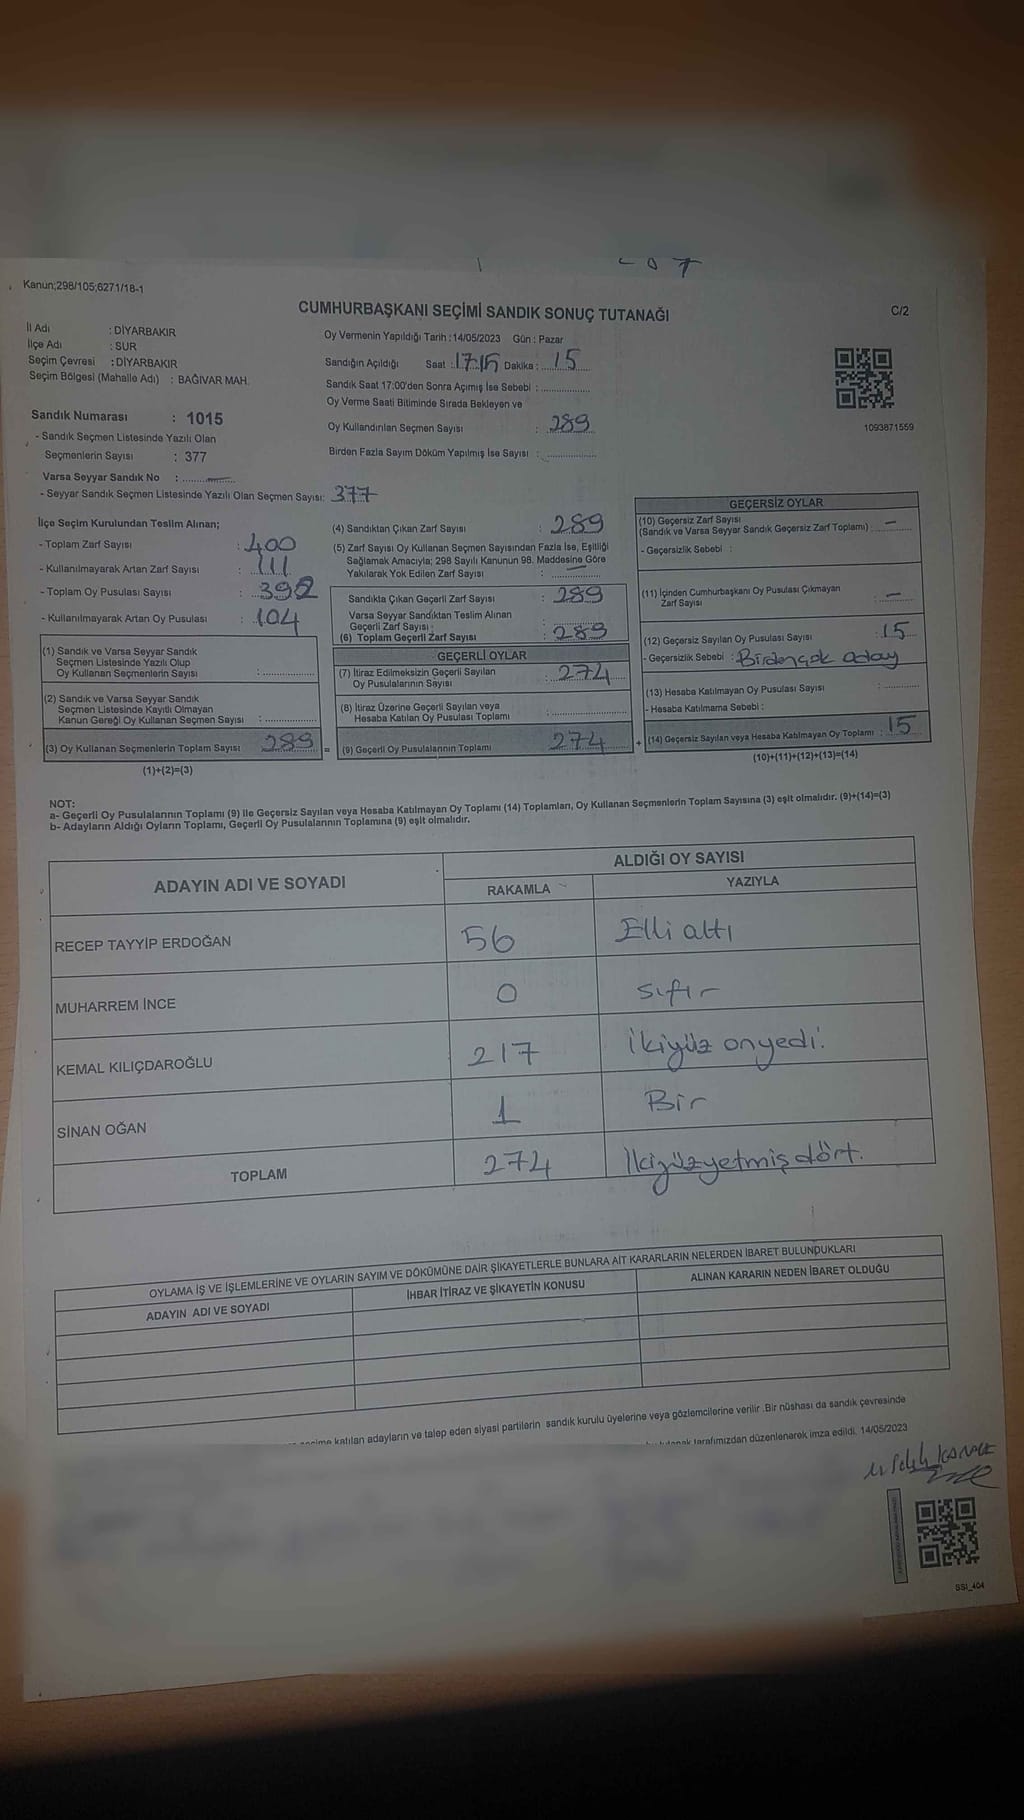 Kanun;298/105;6271/18-1
CUMHURBAŞKANI SEÇİMİ SANDIK SONUÇ TUTANAĞI
C/2
İl Adı : DİYARBAKIR
İlçe Adı : SUR
Seçim Çevresi : DİYARBAKIR
Seçim Bölgesi (Mahalle Adı) : BAĞIVAR MAH.
Oy Vermenin Yapıldığı Tarih : 14/05/2023 Gün : Pazar
Sandığın Açıldığı Saat : 17:15 Dakika : 15
Sandık Saat 17:00'den Sonra Açımış İse Sebebi :
Oy Verme Saati Bitiminde Sırada Bekleyen ve
Oy Kullandırılan Seçmen Sayısı : 289
Birden Fazla Sayım Döküm Yapılmış İse Sayısı :
1093871559
Sandık Numarası : 1015
- Sandık Seçmen Listesinde Yazılı Olan
Seçmenlerin Sayısı : 377
Varsa Seyyar Sandık No :
- Seyyar Sandık Seçmen Listesinde Yazılı Olan Seçmen Sayısı: 377
İlçe Seçim Kurulundan Teslim Alınan;
- Toplam Zarf Sayısı : 400
- Kullanılmayarak Artan Zarf Sayısı : 111
- Toplam Oy Pusulası Sayısı : 392
- Kullanılmayarak Artan Oy Pusulası : 104
(1) Sandık ve Varsa Seyyar Sandık
Seçmen Listesinde Yazılı Olup
Oy Kullanan Seçmenlerin Sayısı :
(2) Sandık ve Varsa Seyyar Sandık
Seçmen Listesinde Kayıtlı Olmayan
Kanun Gereği Oy Kullanan Seçmen Sayısı :
(3) Oy Kullanan Seçmenlerin Toplam Sayısı : 289
(1)+(2)=(3)
(4) Sandıktan Çıkan Zarf Sayısı : 289
(5) Zarf Sayısı Oy Kullanan Seçmen Sayısından Fazla İse, Eşitliği
Sağlamak Amacıyla; 298 Sayılı Kanunun 98. Maddesine Göre
Yakılarak Yok Edilen Zarf Sayısı :
Sandıkta Çıkan Geçerli Zarf Sayısı : 289
Varsa Seyyar Sandıktan Teslim Alınan
Geçerli Zarf Sayısı :
(6) Toplam Geçerli Zarf Sayısı : 289
GEÇERLİ OYLAR
(7) İtiraz Edilmeksizin Geçerli Sayılan
Oy Pusulalarının Sayısı : 274
(8) İtiraz Üzerine Geçerli Sayılan veya
Hesaba Katılan Oy Pusulası Toplamı :
= (9) Geçerli Oy Pusulalarının Toplamı 274
GEÇERSİZ OYLAR
(10) Geçersiz Zarf Sayısı
(Sandık ve Varsa Seyyar Sandık Geçersiz Zarf Toplamı) : -
- Geçersizlik Sebebi :
(11) İçinden Cumhurbaşkanı Oy Pusulası Çıkmayan
Zarf Sayısı : -
(12) Geçersiz Sayılan Oy Pusulası Sayısı : 15
- Geçersizlik Sebebi : Birden çok aday
(13) Hesaba Katılmayan Oy Pusulası Sayısı :
- Hesaba Katılmama Sebebi :
+ (14) Geçersiz Sayılan veya Hesaba Katılmayan Oy Toplamı : 15
(10)+(11)+(12)+(13)=(14)
NOT:
a- Geçerli Oy Pusulalarının Toplamı (9) ile Geçersiz Sayılan veya Hesaba Katılmayan Oy Toplamı (14) Toplamları, Oy Kullanan Seçmenlerin Toplam Sayısına (3) eşit olmalıdır. (9)+(14)=(3)
b- Adayların Aldığı Oyların Toplamı, Geçerli Oy Pusulalarının Toplamına (9) eşit olmalıdır.
ADAYIN ADI VE SOYADI
ALDIĞI OY SAYISI
RAKAMLA YAZIYLA
RECEP TAYYİP ERDOĞAN 56 Elli altı
MUHARREM İNCE 0 sıfır
KEMAL KILIÇDAROĞLU 217 İkiyüz onyedi.
SİNAN OĞAN 1 Bir
TOPLAM 274 İkiyüzyetmiş dört.
OYLAMA İŞ VE İŞLEMLERİNE VE OYLARIN SAYIM VE DÖKÜMÜNE DAİR ŞİKAYETLERLE BUNLARA AİT KARARLARIN NELERDEN İBARET BULUNDUKLARI
ADAYIN ADI VE SOYADI İHBAR İTİRAZ VE ŞİKAYETİN KONUSU ALINAN KARARIN NEDEN İBARET OLDUĞU
katılan adayların ve talep eden siyasi partilerin sandık kurulu üyelerine veya gözlemcilerine verilir .Bir nüshası da sandık çevresinde
tarafımızdan düzenlenerek imza edildi. 14/05/2023
SSI_404